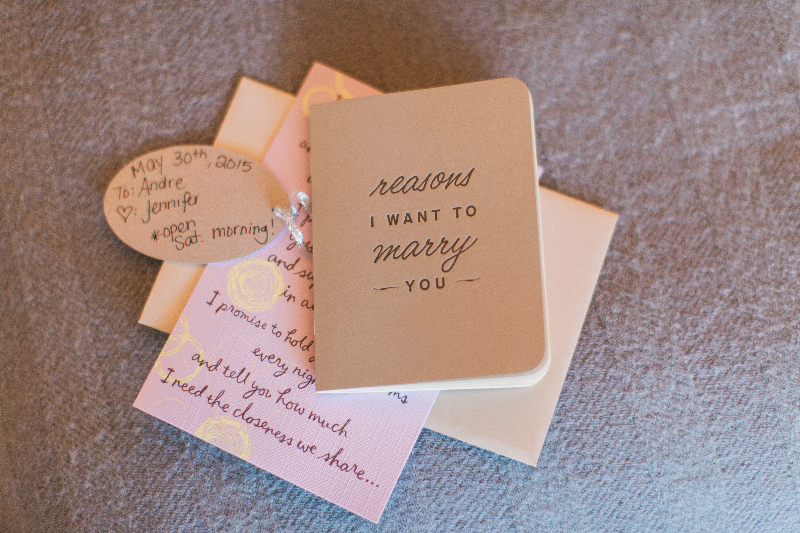 May 30th, 2015
To: Andre
♡: Jennifer
*open
Sat. morning!
reasons
I WANT TO
marry
YOU
and
in
I promise to hold
every
and tell you how much
I need the closeness we share...